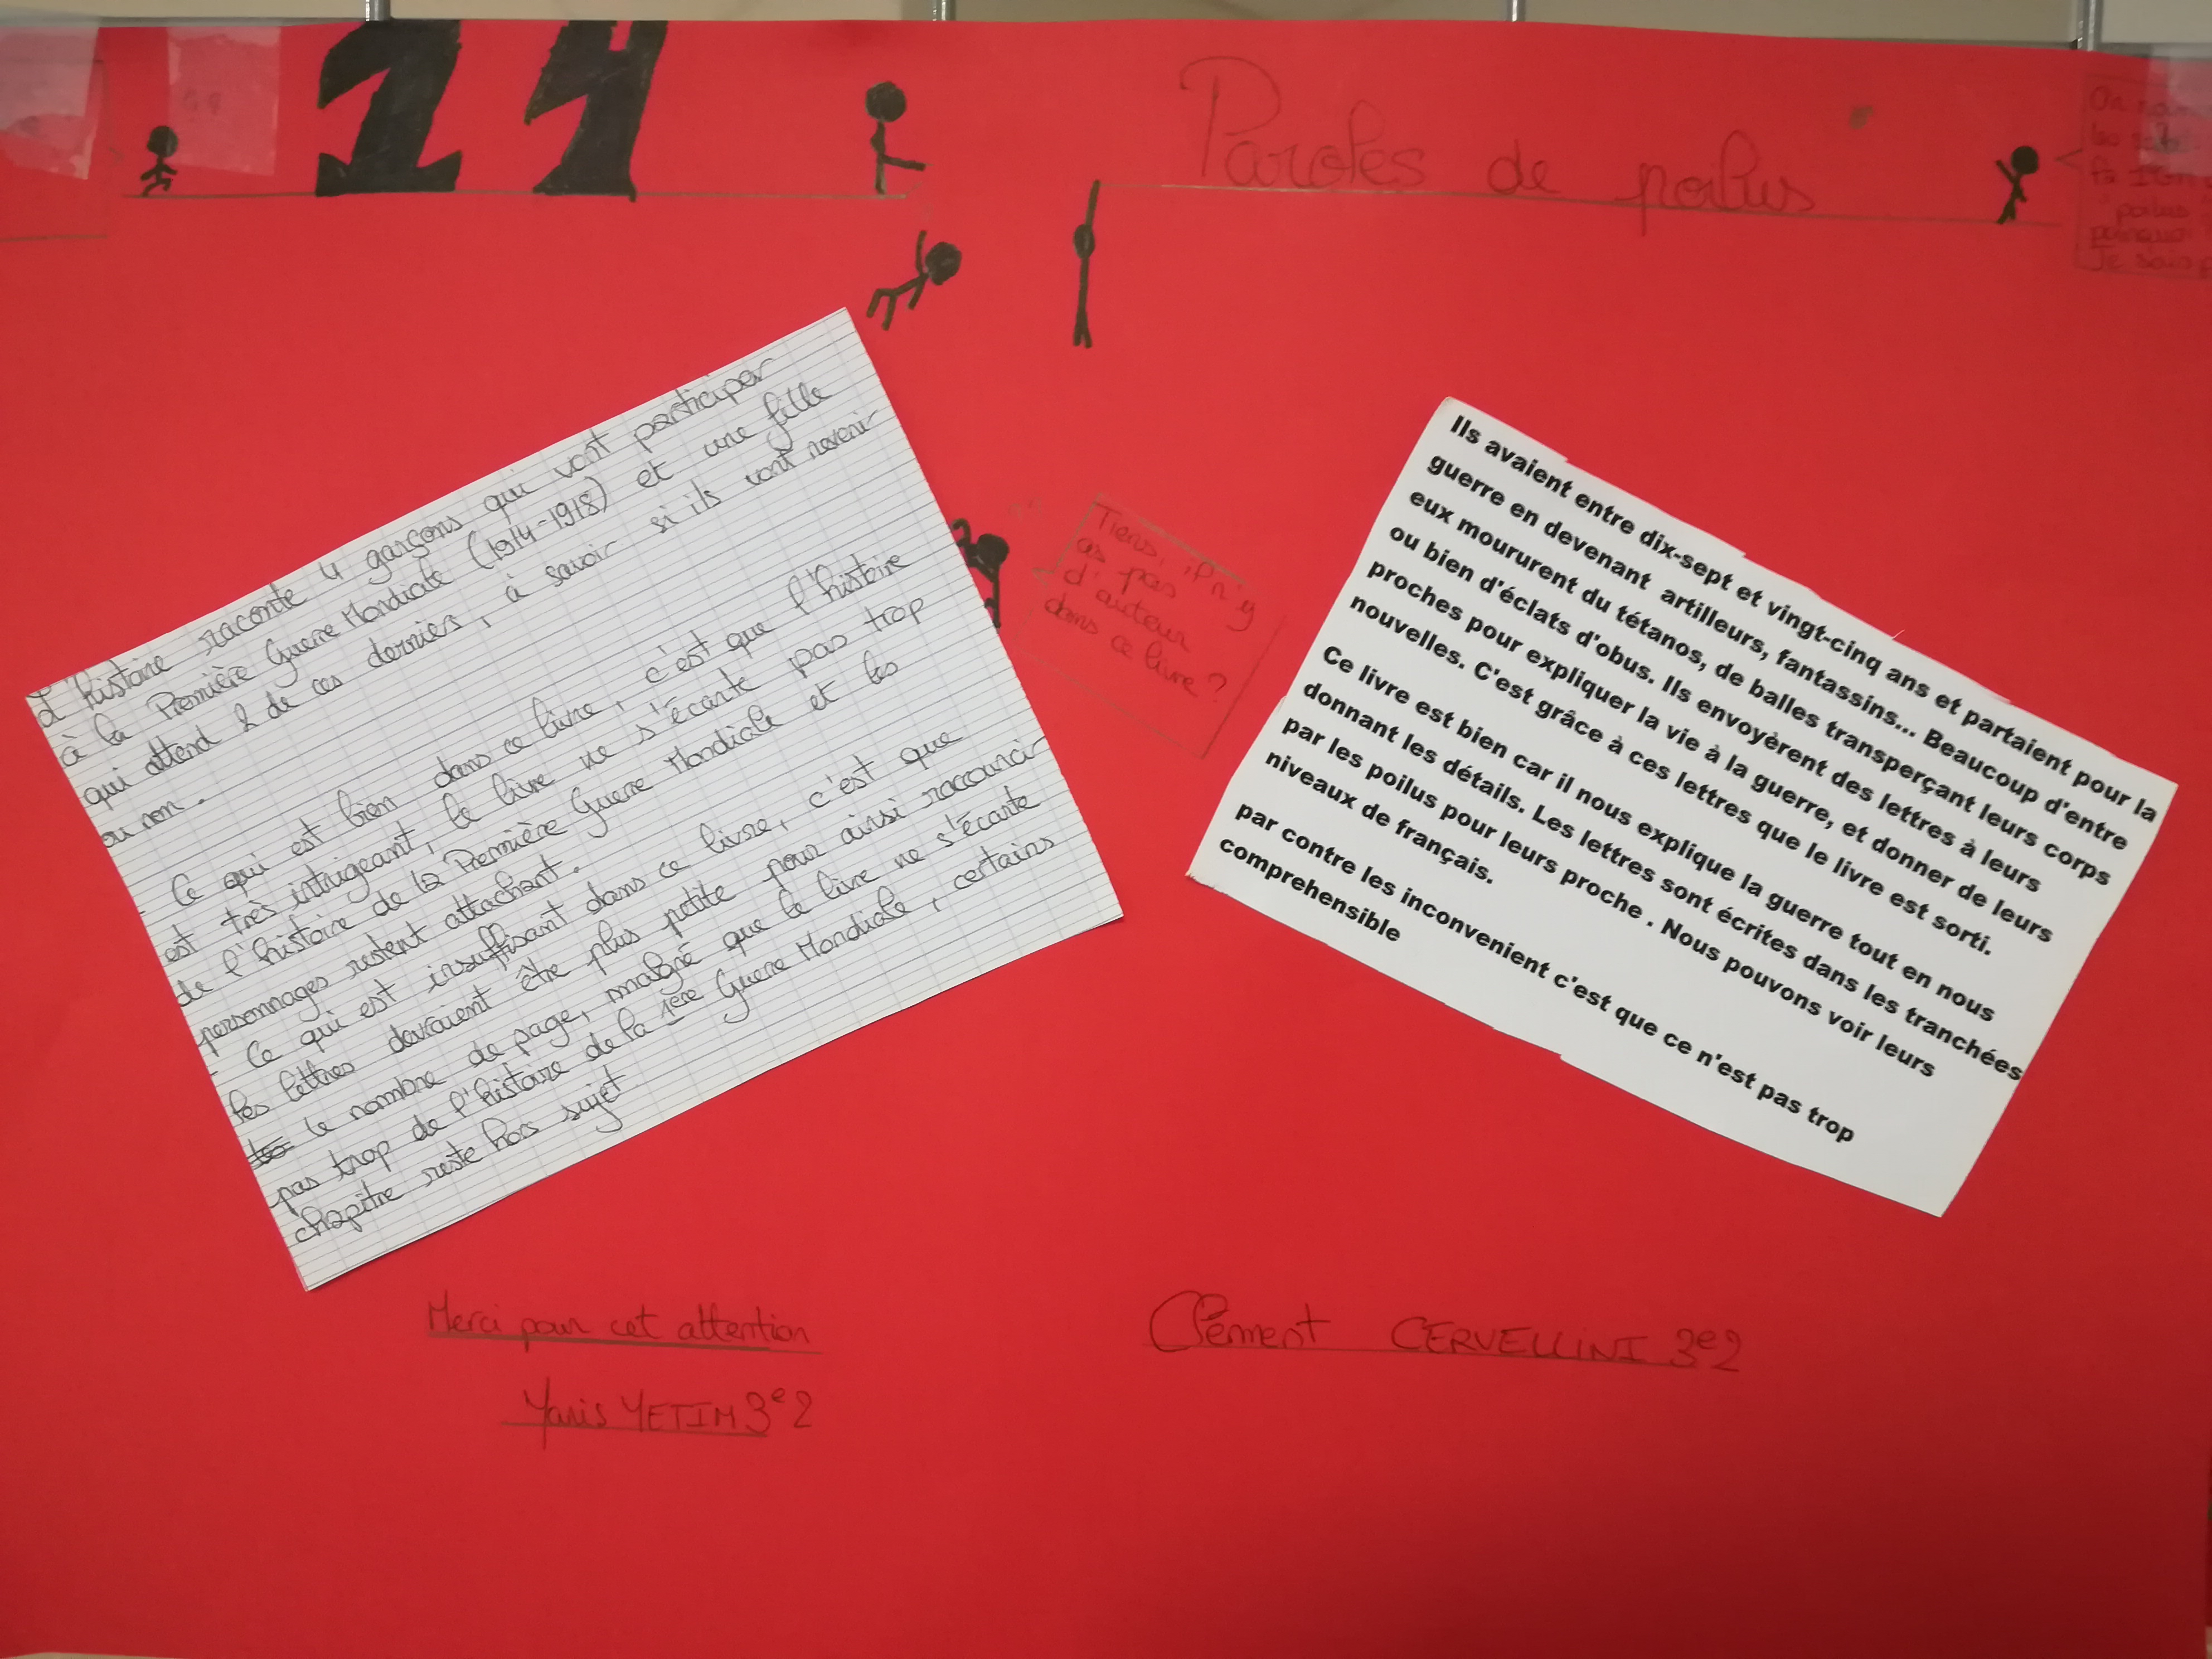 14
Paroles de poilus
poilus
pourquoi
L'histoire raconte 4 garçons qui vont participer
à la Première Guerre Mondiale (1914-1918) et une fille
qui attend 2 de ces derniers, à savoir si ils vont revenir
ou non.
- Ce qui est bien dans ce livre, c'est que l'histoire
est très intrigeant, le livre ne s'écarte pas trop
de l'histoire de la Première Guerre Mondiale et les
personnages restent attachant.
- Ce qui est insuffisant dans ce livre, c'est que
les lettres devraient être plus petite pour ainsi raccourcir
le nombre de page, malgré que le livre ne s'écarte
pas trop de l'histoire de la 1ère Guerre Mondiale, certains
chapitre reste hors sujet.
Tiens, il n'y
as pas
d'auteur
dans ce livre ?
Ils avaient entre dix-sept et vingt-cinq ans et partaient pour la
guerre en devenant artilleurs, fantassins... Beaucoup d'entre
eux moururent du tétanos, de balles transperçant leurs corps
ou bien d'éclats d'obus. Ils envoyèrent des lettres à leurs
proches pour expliquer la vie à la guerre, et donner de leurs
nouvelles. C'est grâce à ces lettres que le livre est sorti.
Ce livre est bien car il nous explique la guerre tout en nous
donnant les détails. Les lettres sont écrites dans les tranchées
par les poilus pour leurs proche . Nous pouvons voir leurs
niveaux de français.
par contre les inconvenient c'est que ce n'est pas trop
comprehensible
Merci pour cet attention
Yanis YETIM 3e2
Clément CERVELLINI 3e2